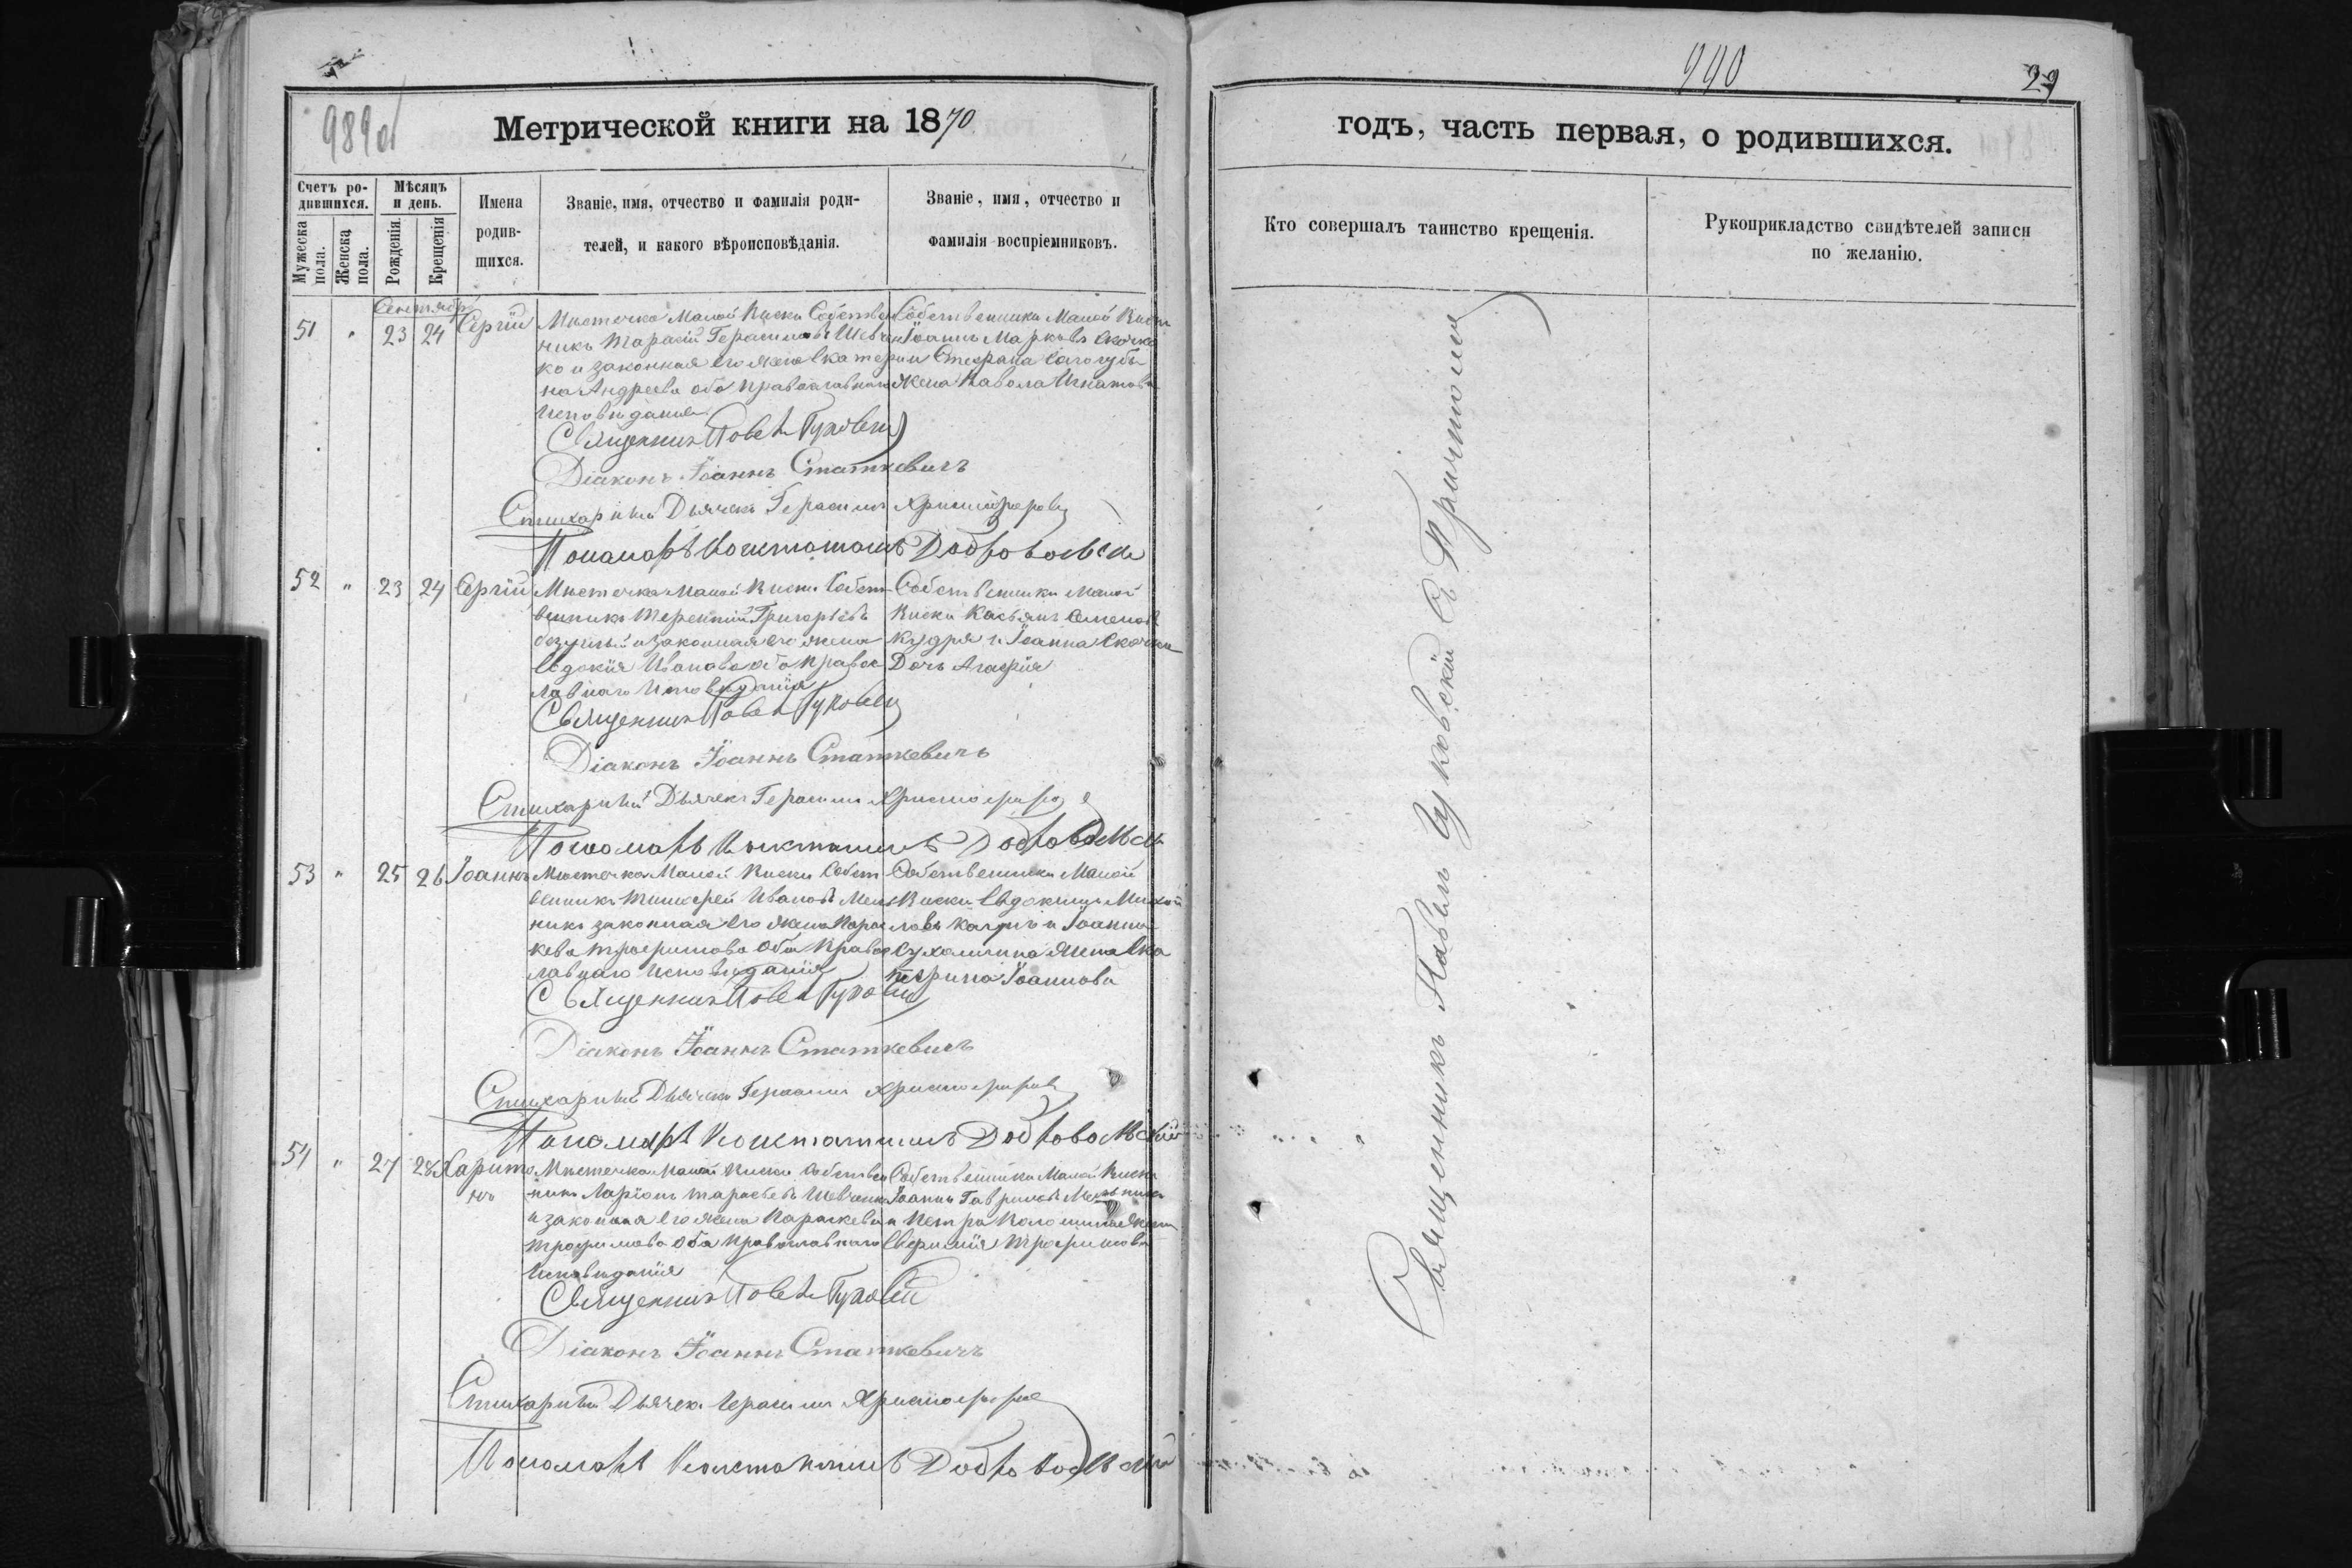 989 об
Метрической книги на 1870
Счетъ ро-
дившихся.
Мужеска пола.
Женска пола.
Мѣсяцъ
и день.
Рожденія.
Крещенія
Имена
родив-
шихся.
Званіе, имя, отчество и фамилія роди-
телей, и какого вѣроисповѣданія.
Званіе, имя, отчество и
фамилія воспріемниковъ.
Сентябр
51 " 23 24 Сергій
Мѣстечка Малой Виски Собствен
никъ Тарасій Герасимовъ Шевчен
ко и законная его жена Екатери
на Андреева оба православнаго
исповѣданія
Собственники Малой Виски
Іоаннъ Марковъ
Стефана
жена Павола Игнатова
Священникъ Павелъ Гуковскій
Діаконъ Іоаннъ Статкевичъ
Стихарный Дьячекъ Герасимъ Христофоровъ
Пономарь Константинъ Добровольскій
52 " 23 24 Сергій
Мѣстечка Малой Виски Собст
венникъ Терентій Григорьевъ
и законная его жена
Евдокія Иванова оба правос
лавнаго исповѣданія
Собственники Малой
Виски Касьянъ Семеновъ
Кудря и Іоанна
Дочь Агафія
Священникъ Павелъ Гуковскій
Діаконъ Іоаннъ Статкевичъ
Стихарный Дьячекъ Герасимъ Христофоровъ
Пономарь Константинъ Добровольскій
53 " 25 26 Іоаннъ
Мѣстечка Малой Виски Собст
венникъ Тимофей Ивановъ Мель
никъ законная его жена Парас
кева Трофимова оба правос
лавнаго исповѣданія
Собственники Малой
Виски Евдокимъ Михай
ловъ и Іоанна
жена Ека
терина Іоаннова
Священникъ Павелъ Гуковскій
Діаконъ Іоаннъ Статкевичъ
Стихарный Дьячекъ Герасимъ Христофоровъ
Пономарь Константинъ Добровольскій
54 " 27 28 Харито
нъ
Мѣстечка Малой Виски Собствен
никъ Ларіонъ Тарасьевъ Шевченко
и законная его жена Параскева
Трофимова оба православнаго
исповѣданія
Собственники Малой Виски
Іоаннъ Гавриловъ Мельникъ
и Петра жена
Евфимія Трофимова
Священникъ Павелъ Гуковскій
Діаконъ Іоаннъ Статкевичъ
Стихарный Дьячекъ Герасимъ Христофоровъ
Пономарь Константинъ Добровольскій
990
29
годъ, часть первая, о родившихся.
Кто совершалъ таинство крещенія.
Рукоприкладство свидѣтелей записи
по желанію.
Священникъ Павелъ Гуковскій С Причтомъ